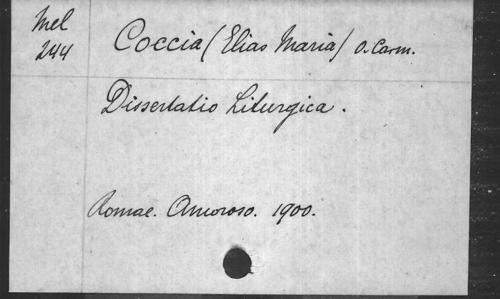 Mel
244
Coccia (Elias Maria) O. Carm.
Dissertatio Liturgica.
Romae. Amoroso. 1900.